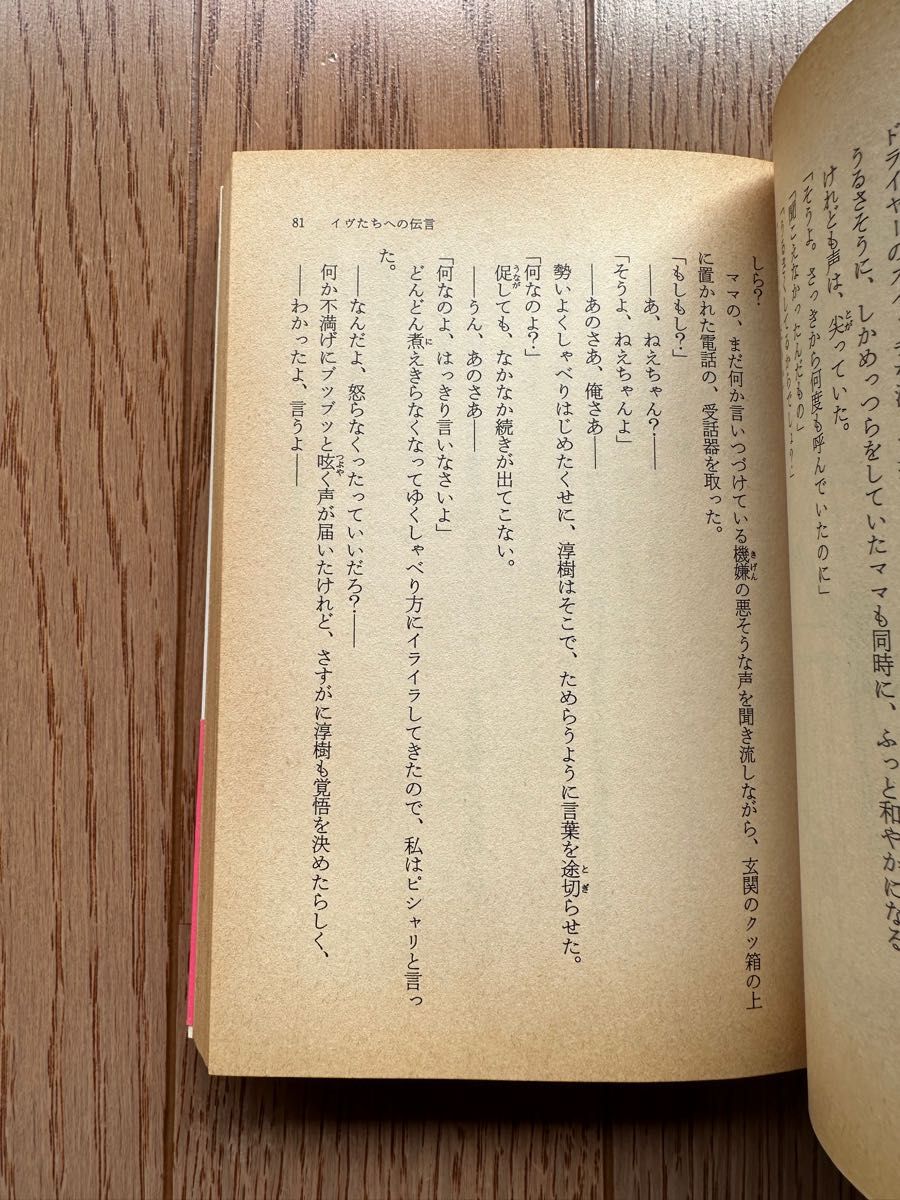 うるさそうに、しかめっつらをしていたママも同時に、ふっと和やかになる
けれども声は、尖っていた。
「そうよ。さっきから何度も呼んでいたのに」
「聞こえなかったんだもの」
81 イヴたちへの伝言
しら?
ママの、まだ何か言いつづけている機嫌の悪そうな声を聞き流しながら、玄関のクツ箱の上
に置かれた電話の、受話器を取った。
「もしもし?」
――あ、ねえちゃん?――
「そうよ、ねえちゃんよ」
――あのさあ、俺さあ――
勢いよくしゃべりはじめたくせに、淳樹はそこで、ためらうように言葉を途切らせた。
「何なのよ?」
促しても、なかなか続きが出てこない。
――うん、あのさあ――
「何なのよ、はっきり言いなさいよ」
どんどん煮えきらなくなってゆくしゃべり方にイライラしてきたので、私はピシャリと言っ
た。
――なんだよ、怒らなくったっていいだろ?――
何か不満げにブツブツと呟く声が届いたけれど、さすがに淳樹も覚悟を決めたらしく、
――わかったよ、言うよ――